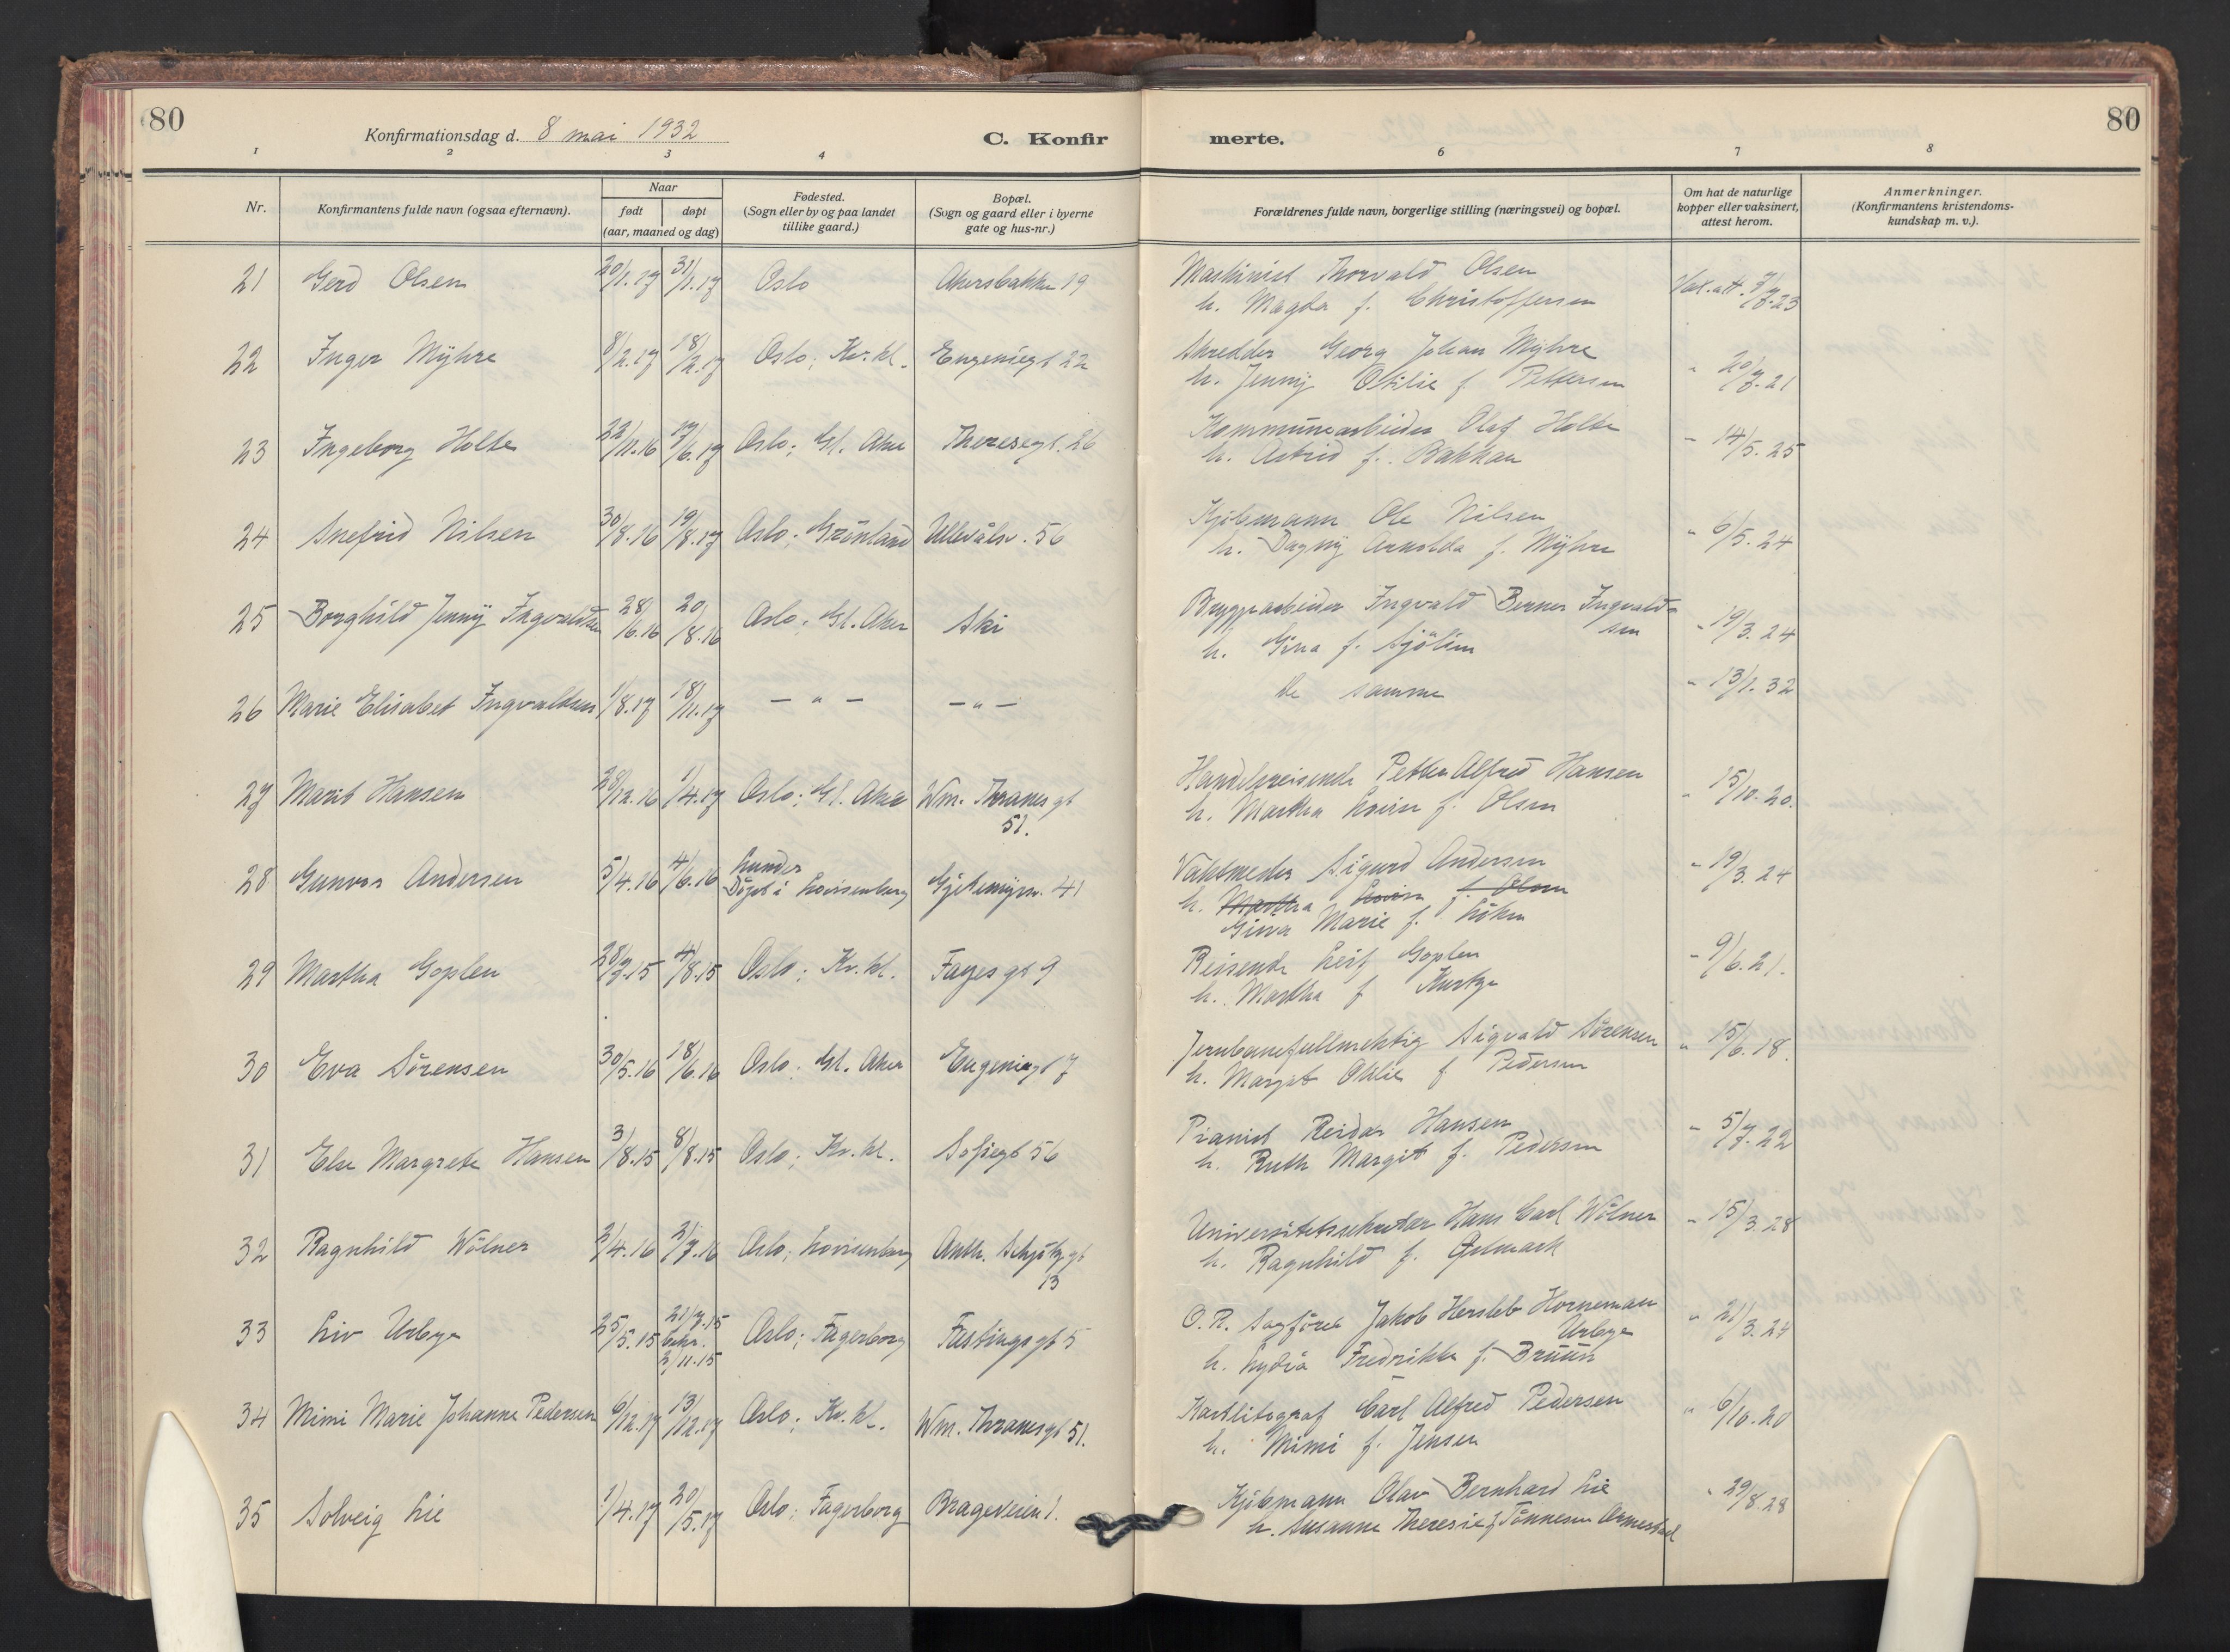 80
Konfirmationsdag d. 8 mai 1932
C. Konfir
merte.
80
1 2 3 4 6 7 8
Nr.
Konfirmantens fulde navn (ogsaa efternavn).
Naar
født døpt
(aar, maaned og dag)
Fødested.
(Sogn eller by og paa landet
tillike gaard.)
Bopæl.
(Sogn og gaard eller i byerne
gate og hus-nr.)
Forældrenes fulde navn, borgerlige stilling (næringsvei) og bopæl.
Om hat de naturlige
kopper eller vaksinert,
attest herom.
Anmerkninger.
(Konfirmantens kristendoms-
kundskap m. v.).
21 Gerd Olsen 20/1.17 31/1.17 Oslo Akersbakken 19 Maskinist Thorvald Olsen Vac.att. 7/7.23
h. Magda f. Christoffersen
22 Inger Myhre 8/2.17 18/2.17 Oslo; Kv.kl. Eugeniegt 22 Skredder Georg Johan Myhre " 20/7.21
h. Jenny Otilie f Pettersen
23 Ingeborg Holte 22/11.16 17/6.17 Oslo; Gl. Aker Theresegt. 26 Kommunearbeider Olaf Holte " 14/5.25
h. Astrid f. Bakkan
24 Snefrid Nilsen 30/8.16 19/8.17 Oslo; Grönland Ullevålsv. 56 Kjöbmann Ole Nilsen " 6/5.24
h. Dagny Arnolda f. Myhre
25 Borghild Jenny Ingvaldsen 28/6.16 20/8.16 Oslo; Gl. Aker Ski Bryggearbeider Ingvald Berner Ingvald-
sen " 19/3.24
h. Gina f. Sjölin
26 Marie Elisabet Ingvaldsen 1/8.17 18/11.17 — " — — " — De samme " 13/1.32
27 Marit Hansen 28/12.16 1/4.17 Oslo; Gl. Aker Wm. Thranes gt
51. Handelsreisende Petter Alfred Hansen " 15/10.20.
h. Martha Lovise f. Olsen
28 Gunvor Andersen 5/4.16 4/6.16 Lunder
Döpt i Lovisenberg Gjetemyrsv. 41 Vaktmester Sigurd Andersen " 19/3.24
h. Martha Lovise f. Olsen
Gina Marie f. Löken
29 Martha Goplen 28/7.15 4/8.15 Oslo; Kv.kl. Fayes gt 9 Reisende Leif Goplen " 9/6.21.
h. Martha f
30 Eva Sörensen 30/5.16 18/6.16 Oslo; Gl. Aker Eugeniegt 7 Jernbanefullmektig Sigvald Sörensen " 15/6.18.
h. Margit Otilie f Pedersen
31 Else Margrete Hansen 3/8.15 8/8.15 Oslo; Kv.kl. Sofiegt 56 Pianist Reidar Hansen " 5/7.22
h. Ruth Margit f. Pedersen
32 Ragnhild Wölner 2/4.16 2/7.16 Oslo; Lovisenberg Anth. Schjøtz gt
13 Universitetssekretær Hans Carl Wölner " 15/3.28
h. Ragnhild f.
33 Liv Urbye 25/5.15 21/7.15
bekr.
2/11.15 Oslo; Fagerborg Fastings gt 5 O.R. Sagförer Jakob Hersleb Horneman
Urbye " 21/3.24
h. Lydia Fredrikke f. Bruun
34 Mimi Marie Johanne Pedersen 6/12.17 13/12.17 Oslo; Kv.kl. Wm. Thranesgt 51. Kartlitograf Carl Alfred Pedersen " 6/10.20
h. Mimi f. Jensen
35 Solveig Lie 1/4.17 20/5.17 Oslo; Fagerborg Brageveien 1. Kjöbmann Olav Bernhard Lie " 29/8.28
h. Susanne Theresie f Tönnesen